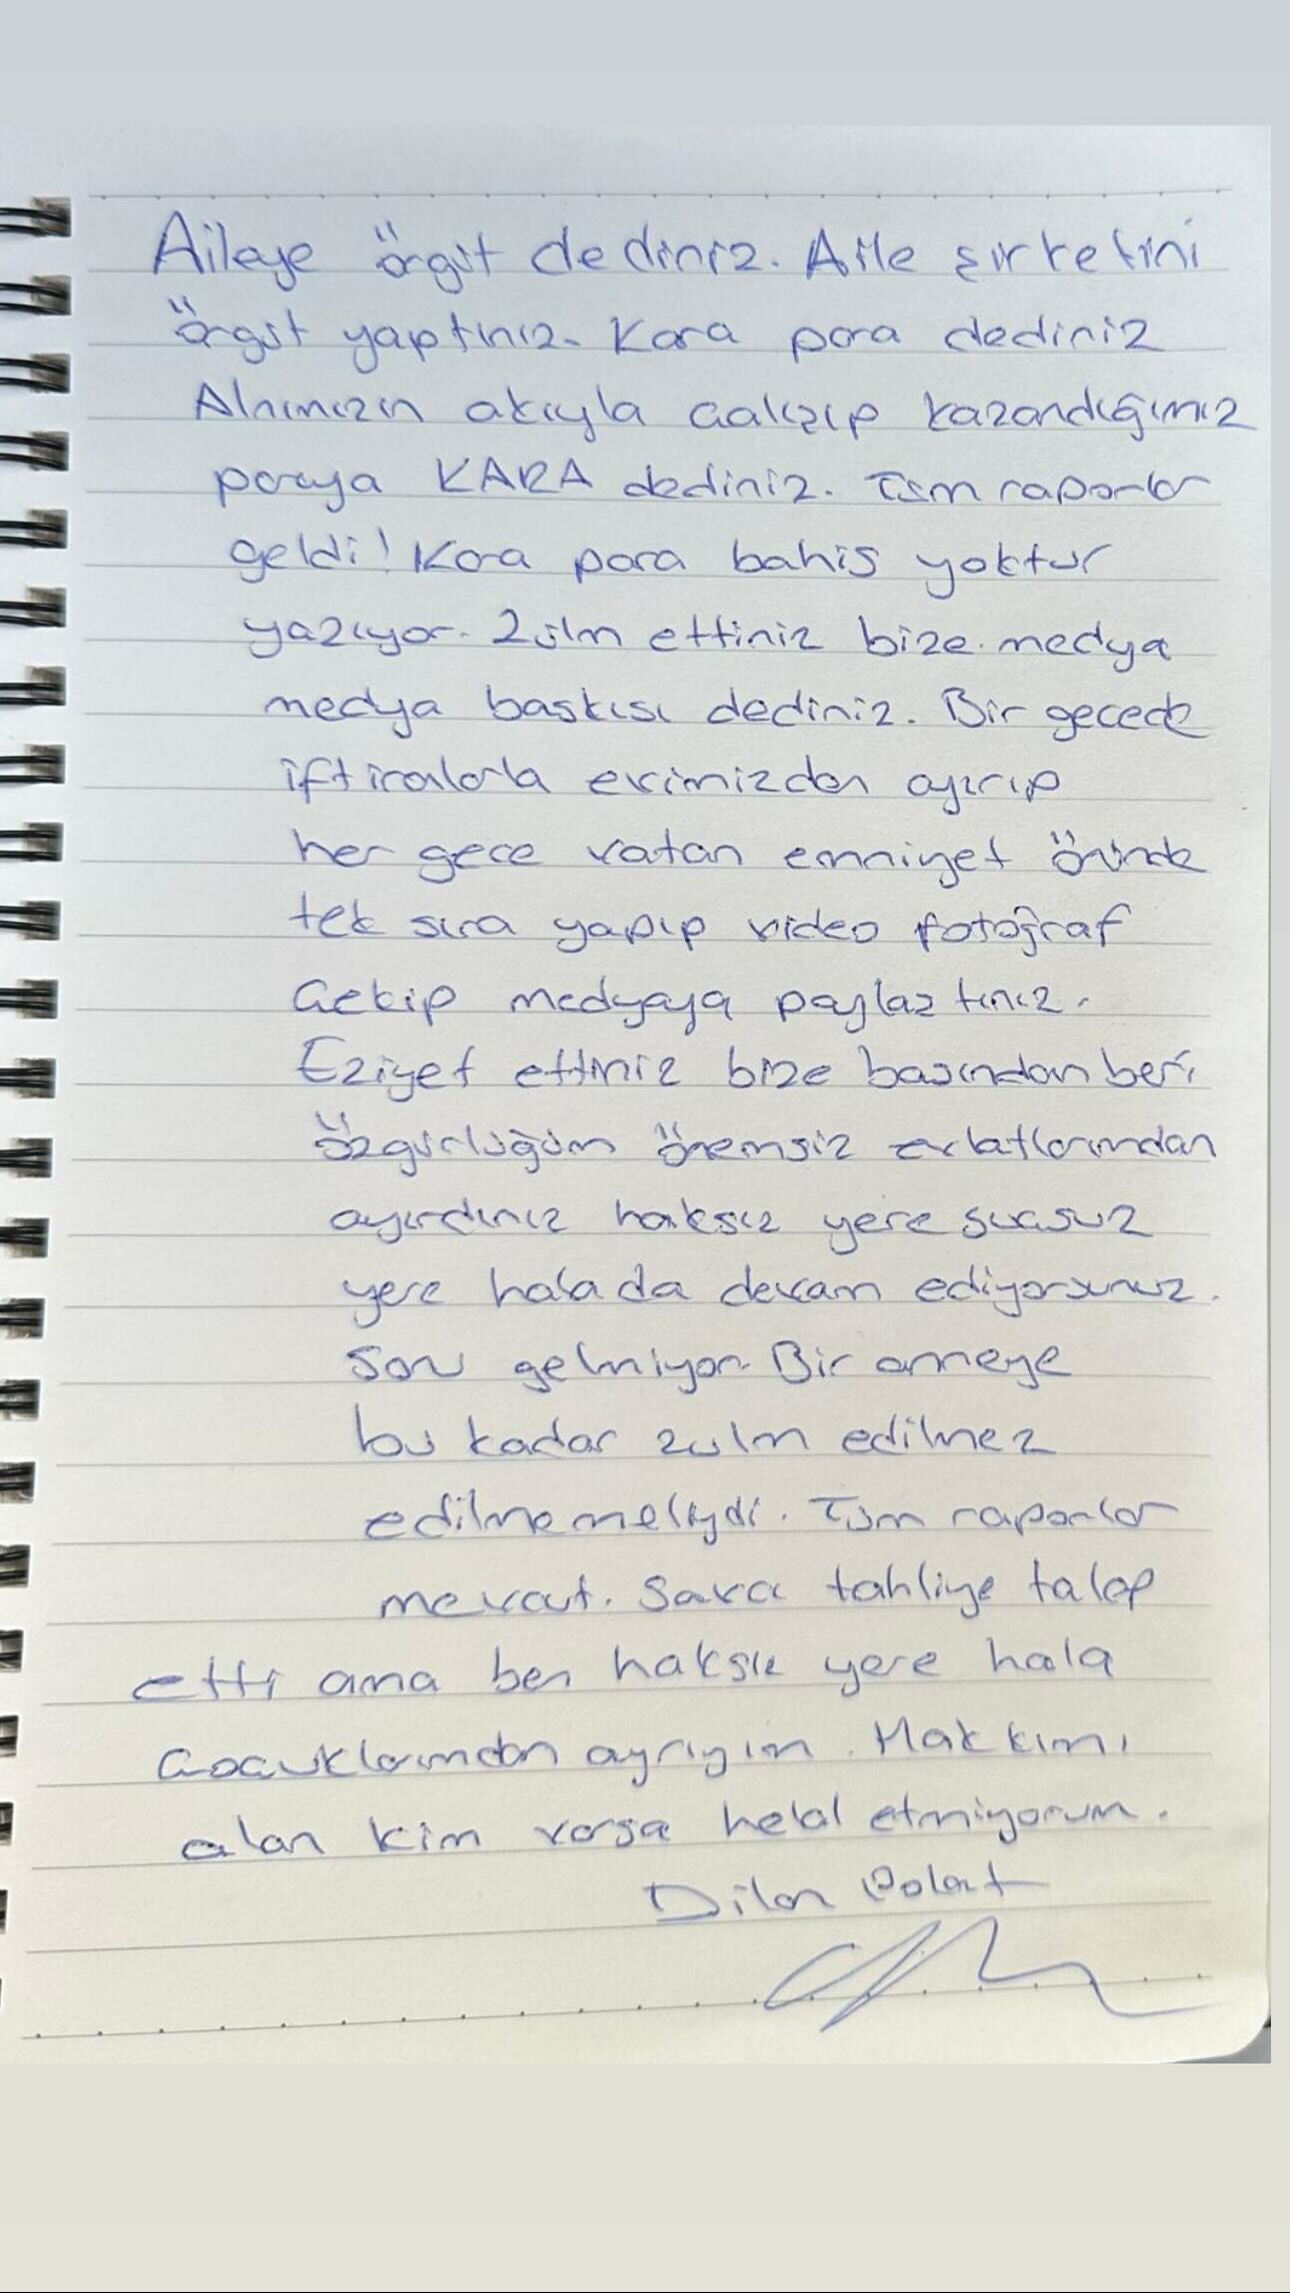 Aileye örgüt dediniz. Aile şirketini
örgüt yaptınız. Kara para dediniz
Alnımızın akıyla çalışıp kazandığımız
paraya KARA dediniz. Tüm raporlar
geldi! Kara para bahis yoktur
yazıyor. Zülm ettiniz bize. medya
medya baskısı dediniz. Bir gecede
iftiralarla evimizden ayırıp
her gece vatan emniyet önünde
tek sıra yapıp video fotoğraf
çekip medyaya paylaştınız.
Eziyet ettiniz bize başından beri
özgürlüğüm önemsiz evlatlarımdan
ayırdınız haksız yere suçsuz
yere hala da devam ediyorsunuz.
Sonu gelmiyor. Bir anneye
bu kadar zulm edilmez
edilmemeliydi. Tüm raporlar
mevcut. Savcı tahliye talep
etti ama ben haksız yere hala
çocuklarımdan ayrıyım. Hakkımı
alan kim varsa helal etmiyorum.
Dilan Polat